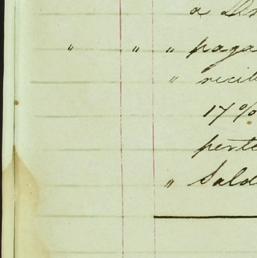 a
" " " paga
" recib
17%
perte
" Sald